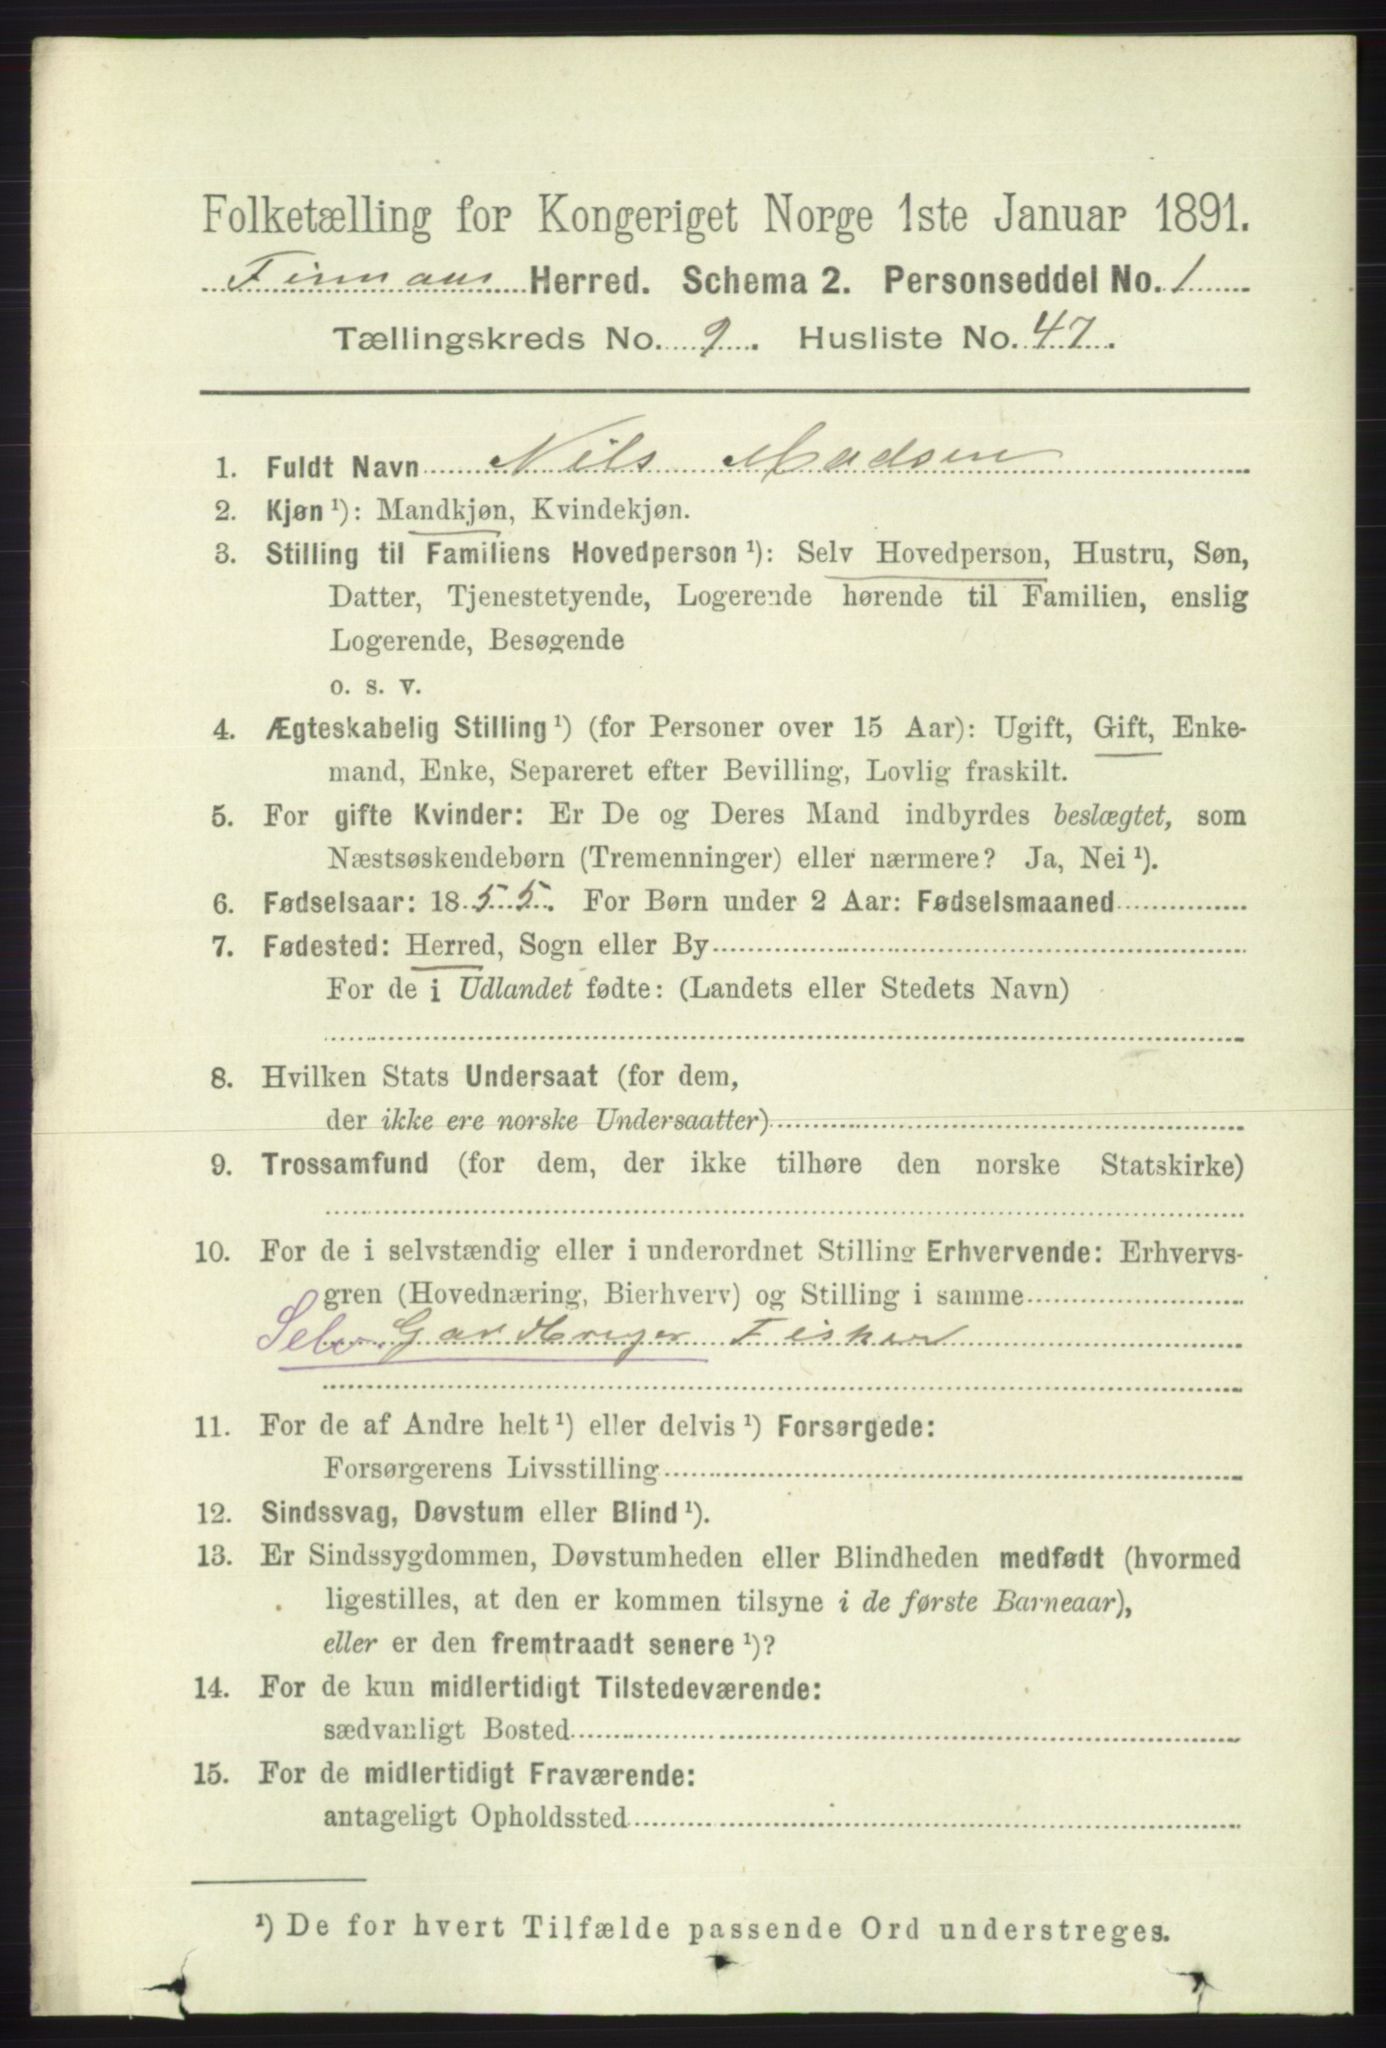 Folketælling for Kongeriget Norge 1ste Januar 1891.
Finnaas Herred. Schema 2. Personseddel No. 1
Tællingskreds No. 9. Husliste No. 47.
1. Fuldt Navn Nils Madsen
2. Kjøn ¹): Mandkjøn, Kvindekjøn.
3. Stilling til Familiens Hovedperson ¹): Selv Hovedperson, Hustru, Søn,
Datter, Tjenestetyende, Logerende hørende til Familien, enslig
Logerende, Besøgende
o. s. v.
4. Ægteskabelig Stilling ¹) (for Personer over 15 Aar): Ugift, Gift, Enke-
mand, Enke, Separeret efter Bevilling, Lovlig fraskilt.
5. For gifte Kvinder: Er De og Deres Mand indbyrdes beslægtet, som
Næstsøskendebørn (Tremenninger) eller nærmere? Ja, Nei ¹).
6. Fødselsaar: 1855. For Børn under 2 Aar: Fødselsmaaned
7. Fødested: Herred, Sogn eller By
For de i Udlandet fødte: (Landets eller Stedets Navn)
8. Hvilken Stats Undersaat (for dem,
der ikke ere norske Undersaatter)
9. Trossamfund (for dem, der ikke tilhøre den norske Statskirke)
10. For de i selvstændig eller i underordnet Stilling Erhvervende: Erhvervs-
gren (Hovednæring, Bierhverv) og Stilling i samme
Selv Gardbruger Fisker
11. For de af Andre helt ¹) eller delvis ¹) Forsørgede:
Forsørgerens Livsstilling
12. Sindssvag, Døvstum eller Blind ¹).
13. Er Sindssygdommen, Døvstumheden eller Blindheden medfødt (hvormed
ligestilles, at den er kommen tilsyne i de første Barneaar),
eller er den fremtraadt senere ¹)?
14. For de kun midlertidigt Tilstedeværende:
sædvanligt Bosted
15. For de midlertidigt Fraværende:
antageligt Opholdssted
¹) De for hvert Tilfælde passende Ord understreges.